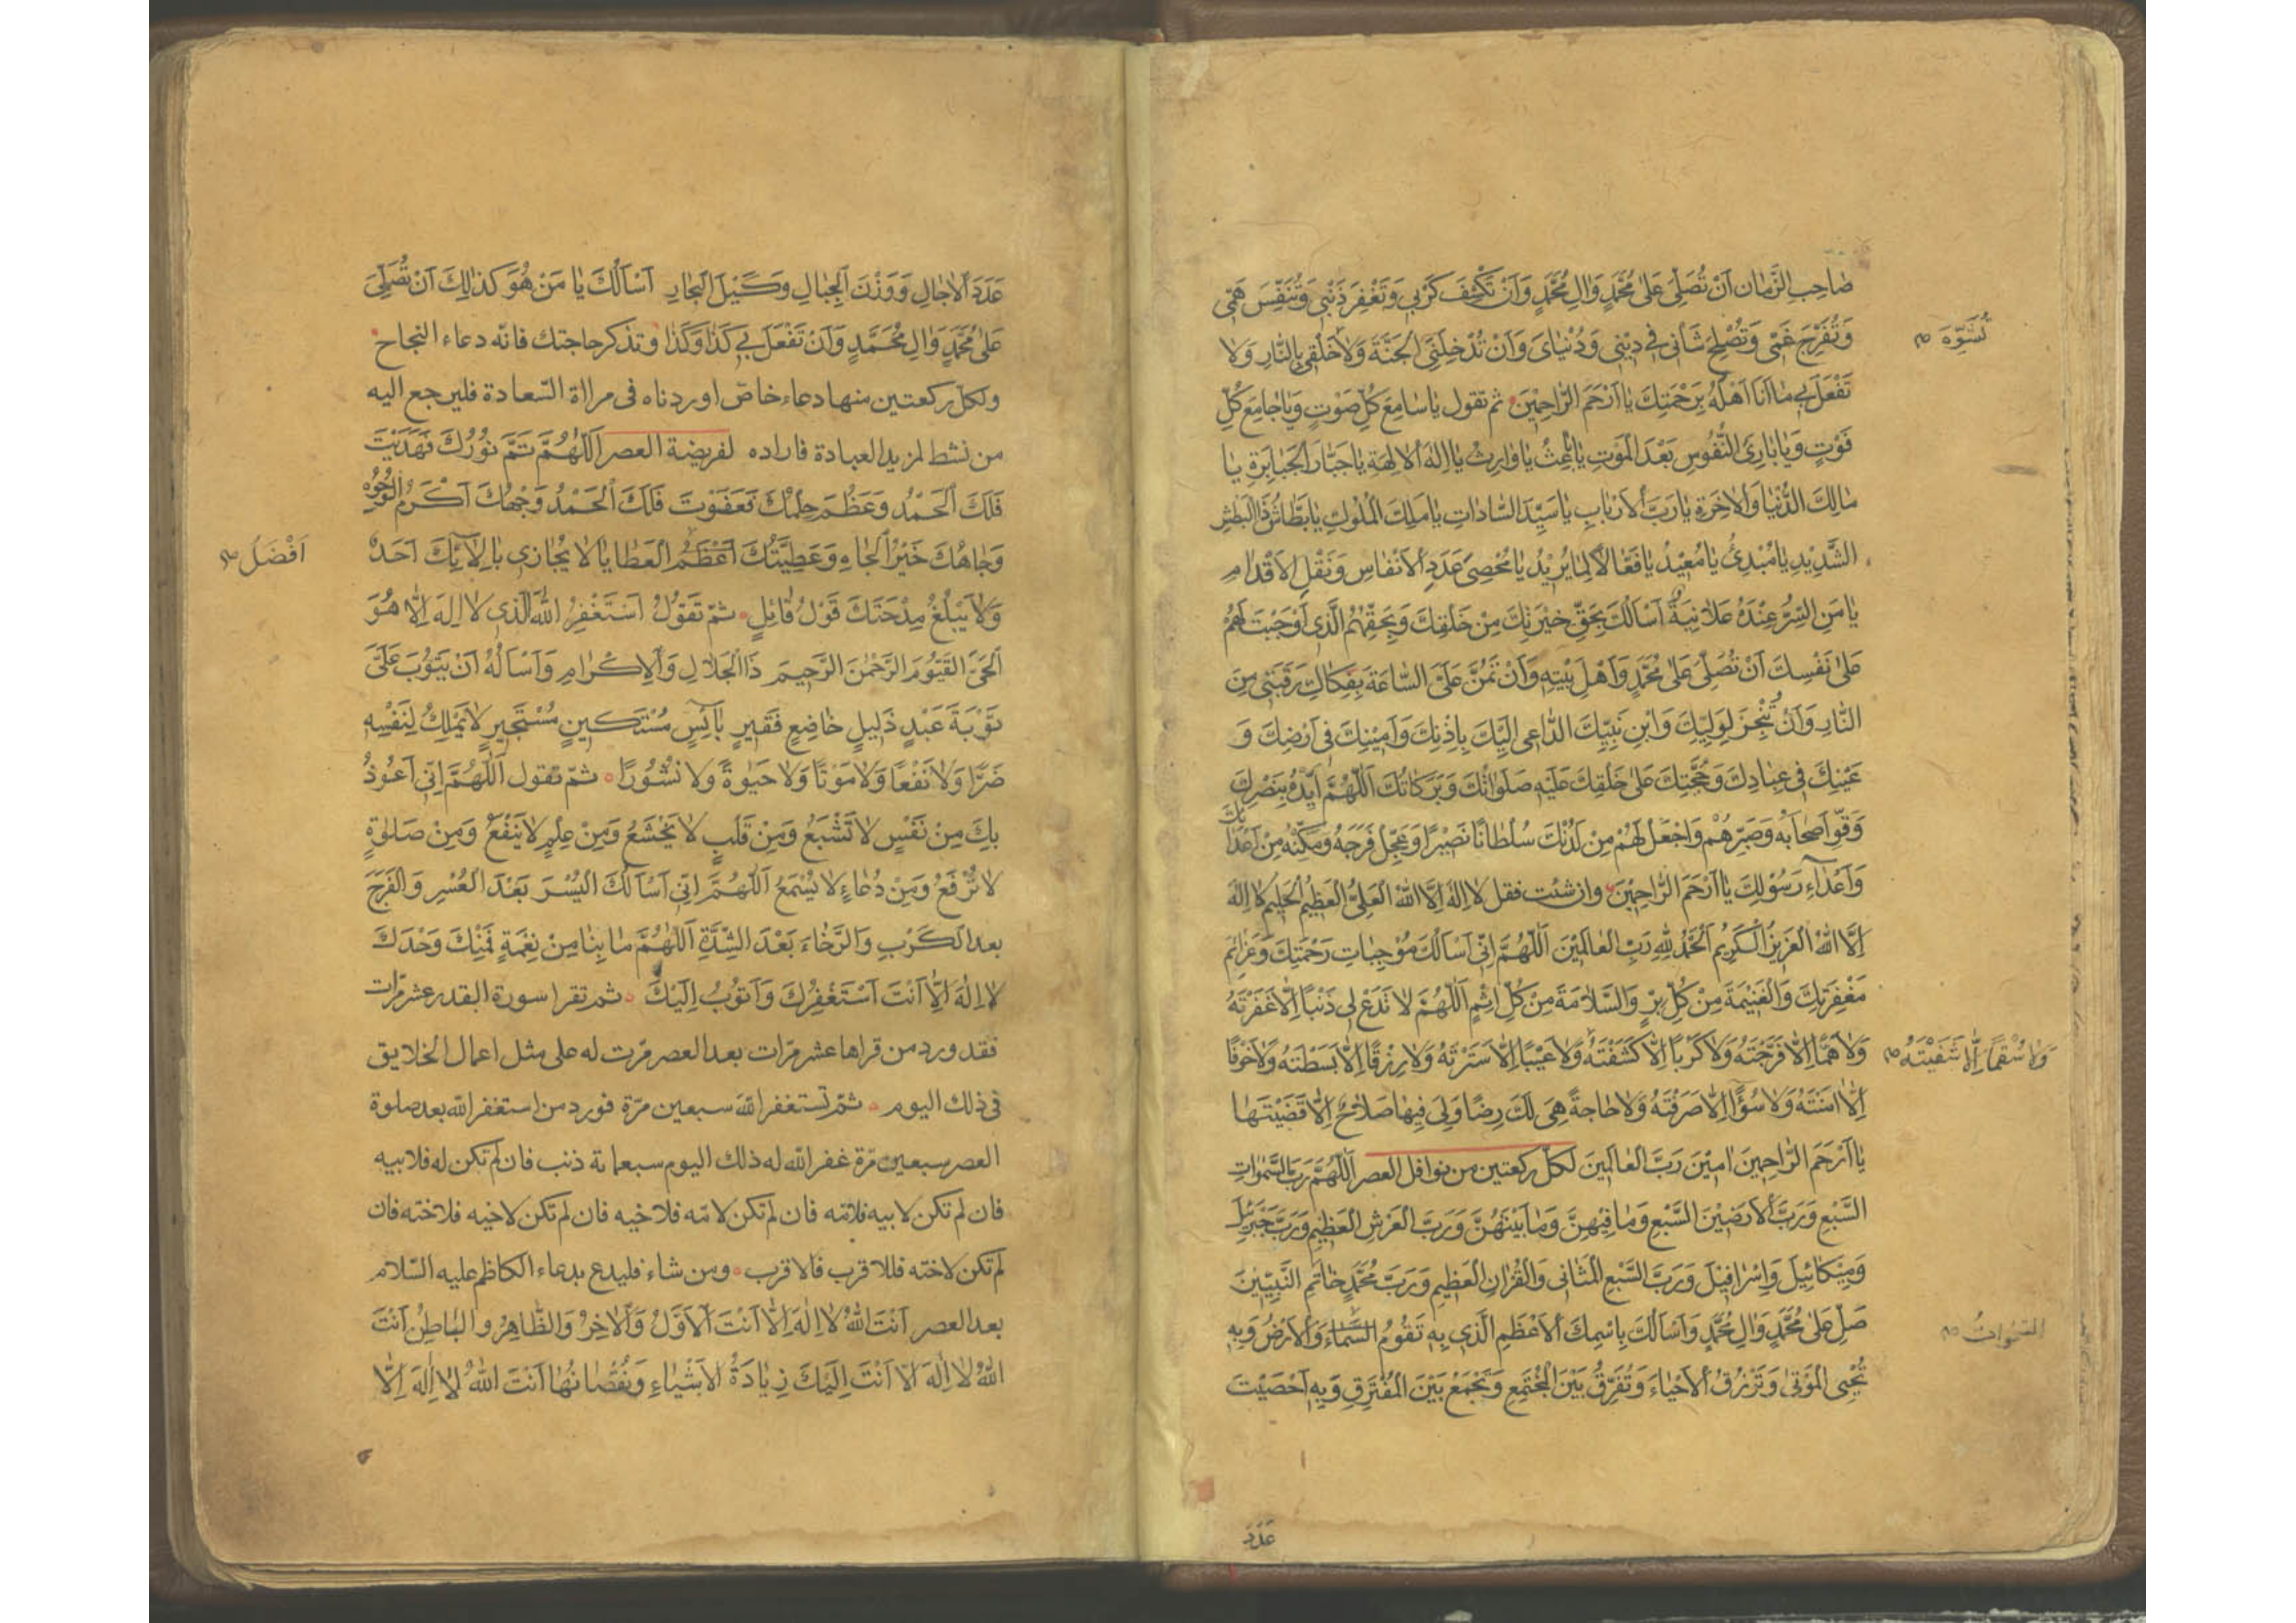 صَاحِبِ الزَّمَانِ اَنْ تُصَلِّىَ عَلىٰ مُحَمَّدٍ وَاٰلِ مُحَمَّدٍ وَاَنْ تَكْشِفَ كَرْبِي وَتَغْفِرَ ذَنْبِي وَتُنَفِّسَ هَمّى
وَتُفَرِّجَ غَمّى وَتُصْلِحَ شَأنى فى دِيْنِى وَدُنْيٰاىَ وَاَنْ تُدْخِلَنِى الْجَنَّةَ وَلٰا خَلْقِى بِالنَّارِ وَلٰا
تُشَوِّهَ
تَفْعَلَ بِي مٰا اَنَا اَهْلُهُ بِرَحْمَتِكَ يٰا اَرْحَمَ الرّٰاحِمِيْنَ ثم تقول يٰا سٰامِعَ كُلِّ صَوْتٍ وَيٰا جٰامِعَ كُلِّ
فَوْتٍ وَيٰا بٰارِئَ النُّفُوسِ بَعْدَ الْمَوْتِ يٰا بٰاعِثُ يٰا وٰارِثُ يٰا اِلٰهَ الْاٰلِهَةِ يٰا جَبّٰارَ الْجَبٰابِرَةِ يٰا
مٰالِكَ الدُّنْيٰا وَالْاٰخِرَةِ يٰا رَبَّ الْاَرْبٰابِ يٰا سَيِّدَ السّٰادٰاتِ يٰا مَلِكَ الْمُلُوكِ يٰا بَطّٰاشُ ذَا الْبَطْشِ
الشَّدِيْدِ يٰا مُبْدِئُ يٰا مُعِيْدُ يٰا فَعّٰالًا لِمٰا يُرِيْدُ يٰا مُحْصِىَ عَدَدِ الْاَنْفٰاسِ وَنَقْلِ الْاَقْدٰامِ
يٰا مَنِ السِّرُّ عِنْدَهُ عَلٰانِيَةٌ اَسْاَلُكَ بِحَقِّ خِيْرَتِكَ مِنْ خَلْقِكَ وَبِحَقِّهِمُ الَّذى اَوْجَبْتَ لَهُمْ
عَلىٰ نَفْسِكَ اَنْ تُصَلِّىَ عَلىٰ مُحَمَّدٍ وَاَهْلِ بَيْتِهِ وَاَنْ تَمُنَّ عَلَىَّ السّٰاعَةَ بِفِكٰاكِ رَقَبَتى مِنَ
النّٰارِ وَاَنْ تُنْجِزَ لِوَلِيِّكَ وَابْنِ نَبِيِّكَ الدّٰاعى اِلَيْكَ بِاِذْنِكَ وَاَمِيْنِكَ فى اَرْضِكَ وَ
عَيْنِكَ فى عِبٰادِكَ وَحُجَّتِكَ عَلىٰ خَلْقِكَ عَلَيْهِ صَلَوٰاتُكَ وَبَرَكٰاتُكَ اَللّٰهُمَّ اَيِّدْهُ بِنَصْرِكَ
وَقَوِّ اَصْحٰابَهُ وَصَبِّرْهُمْ وَاجْعَلْ لَهُمْ مِنْ لَدُنْكَ سُلْطٰانًا نَصِيْرًا وَعَجِّلْ فَرَجَهُ وَمَكِّنْهُ مِنْ اَعْدٰائِكَ
وَاَعْدٰاءِ رَسُوْلِكَ يٰا اَرْحَمَ الرّٰاحِمِيْنَ وان شئت فقل لٰا اِلٰهَ اِلَّا اللّٰهُ الْعَلِىُّ الْعَظِيْمُ الْحَلِيْمُ لٰا اِلٰهَ
اِلَّا اللّٰهُ الْعَزِيْزُ الْكَرِيْمُ اَلْحَمْدُ لِلّٰهِ رَبِّ الْعٰالَمِيْنَ اَللّٰهُمَّ اِنّى اَسْاَلُكَ مُوْجِبٰاتِ رَحْمَتِكَ وَعَزٰائِمَ
مَغْفِرَتِكَ وَالْغَنِيْمَةَ مِنْ كُلِّ بِرٍّ وَالسَّلٰامَةَ مِنْ كُلِّ اِثْمٍ اَللّٰهُمَّ لٰا تَدَعْ لى ذَنْبًا اِلّٰا غَفَرْتَهُ
وَلٰا هَمًّا اِلّٰا فَرَّجْتَهُ وَلٰا كَرْبًا اِلّٰا كَشَفْتَهُ وَلٰا عَيْبًا اِلّٰا سَتَرْتَهُ وَلٰا رِزْقًا اِلّٰا بَسَطْتَهُ وَلٰا خَوْفًا
وَلٰا سُقْمًا اِلّٰا شَفَيْتَهُ
اِلّٰا اٰمَنْتَهُ وَلٰا سُوْءًا اِلّٰا صَرَفْتَهُ وَلٰا حٰاجَةً هِىَ لَكَ رِضًا وَلِىَ فِيهٰا صَلٰاحٌ اِلّٰا قَضَيْتَهٰا
يٰا اَرْحَمَ الرّٰاحِمِينَ اٰمِيْنَ رَبَّ الْعٰالَمِينَ لكلّ ركعتين من نوافل العصر اَللّٰهُمَّ رَبَّ السَّمٰوٰاتِ
السَّبْعِ وَرَبَّ الْاَرَضِيْنَ السَّبْعِ وَمٰا فِيْهِنَّ وَمٰا بَيْنَهُنَّ وَرَبَّ الْعَرْشِ الْعَظِيْمِ وَرَبَّ جَبْرَئِيلَ
وَمِيْكٰائِيْلَ وَاِسْرٰافِيْلَ وَرَبَّ السَّبْعِ الْمَثٰانى وَالْقُرْاٰنِ الْعَظِيْمِ وَرَبَّ مُحَمَّدٍ خٰاتَمِ النَّبِيِّيْنَ
صَلِّ عَلىٰ مُحَمَّدٍ وَاٰلِ مُحَمَّدٍ وَاَسْاَلُكَ بِاسْمِكَ الْاَعْظَمِ الَّذى بِهِ تَقُوْمُ السَّمٰاءُ وَالْاَرْضُ وَبِهِ
السَّمٰوٰاتُ
تُحْيِى الْمَوْتىٰ وَتَرْزُقُ الْاَحْيٰاءَ وَتُفَرِّقُ بَيْنَ الْمُجْتَمِعِ وَتَجْمَعُ بَيْنَ الْمُفْتَرِقِ وَبِهِ اَحْصَيْتَ
عَدَدَ
عَدَدَ الْاٰجٰالِ وَوَزْنَ الْجِبٰالِ وَكَيْلَ الْبِحٰارِ اَسْاَلُكَ يٰا مَنْ هُوَ كَذٰلِكَ اَنْ تُصَلِّىَ
عَلىٰ مُحَمَّدٍ وَاٰلِ مُحَمَّدٍ وَاَنْ تَفْعَلَ بِي كَذٰا وَكَذٰا وتذكر حاجتك فانّه دعاء النجاح
ولكل ركعتين منها دعاء خاصّ اوردناه فى مراٰة السّعادة فليرجع اليه
من نشط لمزيد العبادة فاراده لفريضة العصر اَللّٰهُمَّ تَمَّ نُوْرُكَ فَهَدَيْتَ
فَلَكَ الْحَمْدُ وَعَظُمَ حِلْمُكَ فَعَفَوْتَ فَلَكَ الْحَمْدُ وَجْهُكَ اَكْرَمُ الْوُجُوْهِ
وَجٰاهُكَ خَيْرُ الْجٰاهِ وَعَطِيَّتُكَ اَعْظَمُ الْعَطٰايٰا لٰا يُجٰازى بِاٰلٰائِكَ اَحَدٌ
اَفْضَلُ
وَلٰا يَبْلُغُ مِدْحَتَكَ قَوْلُ قٰائِلٍ ثمّ تَقولُ اَسْتَغْفِرُ اللّٰهَ الَّذى لٰا اِلٰهَ اِلّٰا هُوَ
الْحَىَّ الْقَيُّوْمَ الرَّحْمٰنَ الرَّحِيْمَ ذَا الْجَلٰالِ وَالْاِكْرٰامِ وَاَسْاَلُهُ اَنْ يَتُوْبَ عَلَىَّ
تَوْبَةَ عَبْدٍ ذَلِيلٍ خٰاضِعٍ فَقِيرٍ بٰائِسٍ مُسْتَكِينٍ مُسْتَجِيرٍ لٰا يَمْلِكُ لِنَفْسِهِ
ضَرًّا وَلٰا نَفْعًا وَلٰا مَوْتًا وَلٰا حَيٰوةً وَلٰا نُشُورًا ثمّ تقول اَللّٰهُمَّ اِنّى اَعُوْذُ
بِكَ مِنْ نَفْسٍ لٰا تَشْبَعُ وَمِنْ قَلْبٍ لٰا يَخْشَعُ وَمِنْ عِلْمٍ لٰا يَنْفَعُ وَمِنْ صَلٰوةٍ
لٰا تُرْفَعُ وَمِنْ دُعٰاءٍ لٰا يُسْمَعُ اَللّٰهُمَّ اِنّى اَسْاَلُكَ الْيُسْرَ بَعْدَ الْعُسْرِ وَالْفَرَجَ
بعد الْكَرْبِ وَالرَّخٰاءَ بَعْدَ الشِّدَّةِ اَللّٰهُمَّ مٰا بِنٰا مِنْ نِعْمَةٍ فَمِنْكَ وَحْدَكَ
لٰا اِلٰهَ اِلّٰا اَنْتَ اَسْتَغْفِرُكَ وَاَتُوْبُ اِلَيْكَ ثم تقرا سورة القدر عشر مرّات
فقد ورد من قراها عشر مرّات بعد العصر مرّت له على مثل اعمال الخلايق
فى ذلك اليوم ثمّ تستغفر اللّه سبعين مرّة فورد من استغفر اللّه بعد صلوة
العصر سبعين مرّة غفر اللّه له ذلك اليوم سبعمائة ذنب فان لم تكن له فلابيه
فان لم تكن لابيه فلامّه فان لم تكن لامّه فلاخيه فان لم تكن لاخيه فلاخته فان
لم تكن لاخته فللاقرب فالاقرب ومن شاء فليدع بدعاء الكاظم عليه السّلام
بعد العصر اَنْتَ اللّٰهُ لٰا اِلٰهَ اِلّٰا اَنْتَ الْاَوَّلُ وَالْاٰخِرُ وَالظّٰاهِرُ وَالْبٰاطِنُ اَنْتَ
اللّٰهُ لٰا اِلٰهَ اِلّٰا اَنْتَ اِلَيْكَ زِيٰادَةُ الْاَشْيٰاءِ وَنُقْصٰانُهٰا اَنْتَ اللّٰهُ لٰا اِلٰهَ اِلّٰا